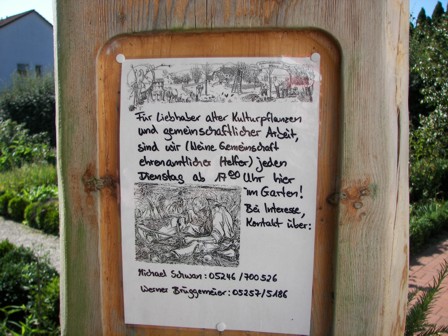 Für Liebhaber alter Kulturpflanzen
und gemeinschaftlicher Arbeit,
sind wir (kleine Gemeinschaft
ehrenamtlicher Helfer) jeden
Dienstag ab 17⁰⁰ Uhr hier
im Garten!
Bei Interesse,
Kontakt über:
Michael Schwan: 05246/700526
Werner Brüggemeier: 05257/5186